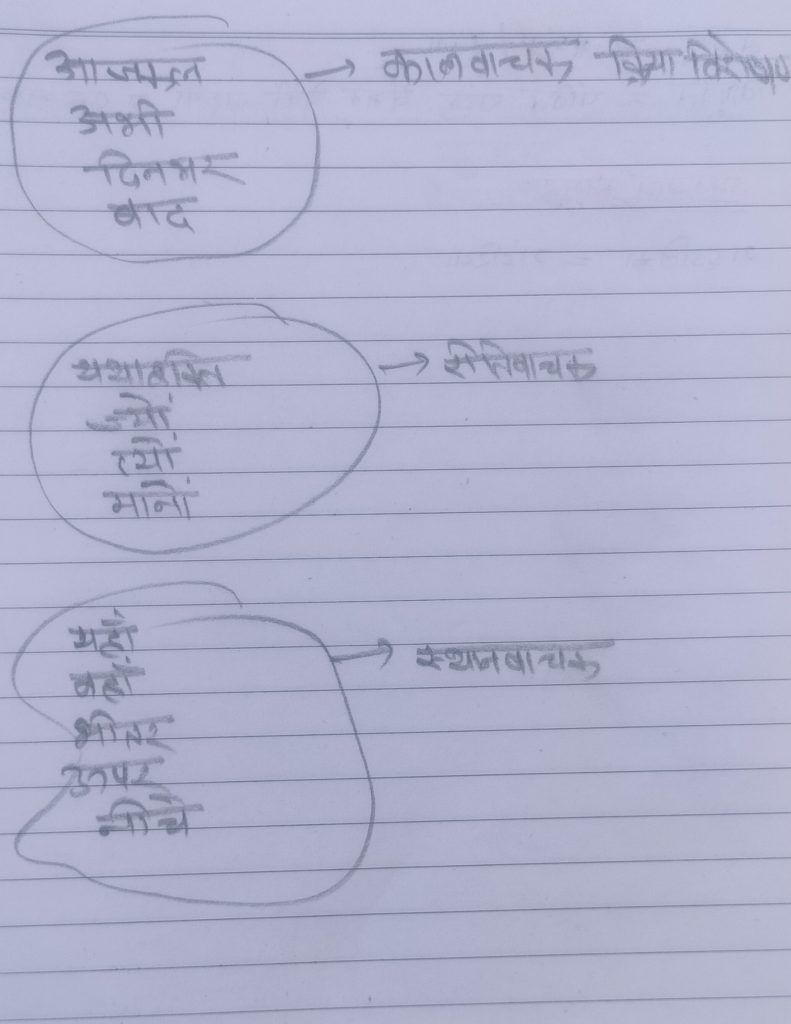 आजकल → कालवाचक क्रिया विशेषण
अभी
दिनभर
बाद
यथाशक्ति → रीतिवाचक
ज्यों
त्यों
मानों
यहाँ → स्थानवाचक
वहाँ
भीतर
ऊपर
नीचे